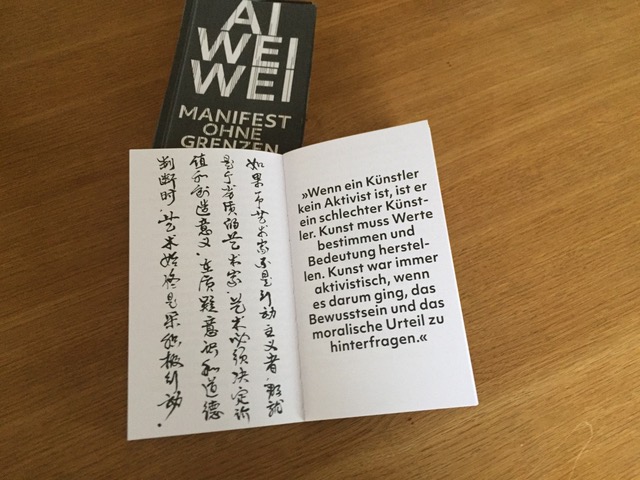 AI
WEI
WEI
MANIFEST
OHNE
GRENZEN
如果一个艺术家不是行动主义者,那就
是个劣质的艺术家.艺术必须决定价
值和创造意义.在质疑意识和道德
判断时.艺术始终是积极行动.
»Wenn ein Künstler
kein Aktivist ist, ist er
ein schlechter Künst-
ler. Kunst muss Werte
bestimmen und
Bedeutung herstel-
len. Kunst war immer
aktivistisch, wenn
es darum ging, das
Bewusstsein und das
moralische Urteil zu
hinterfragen.«